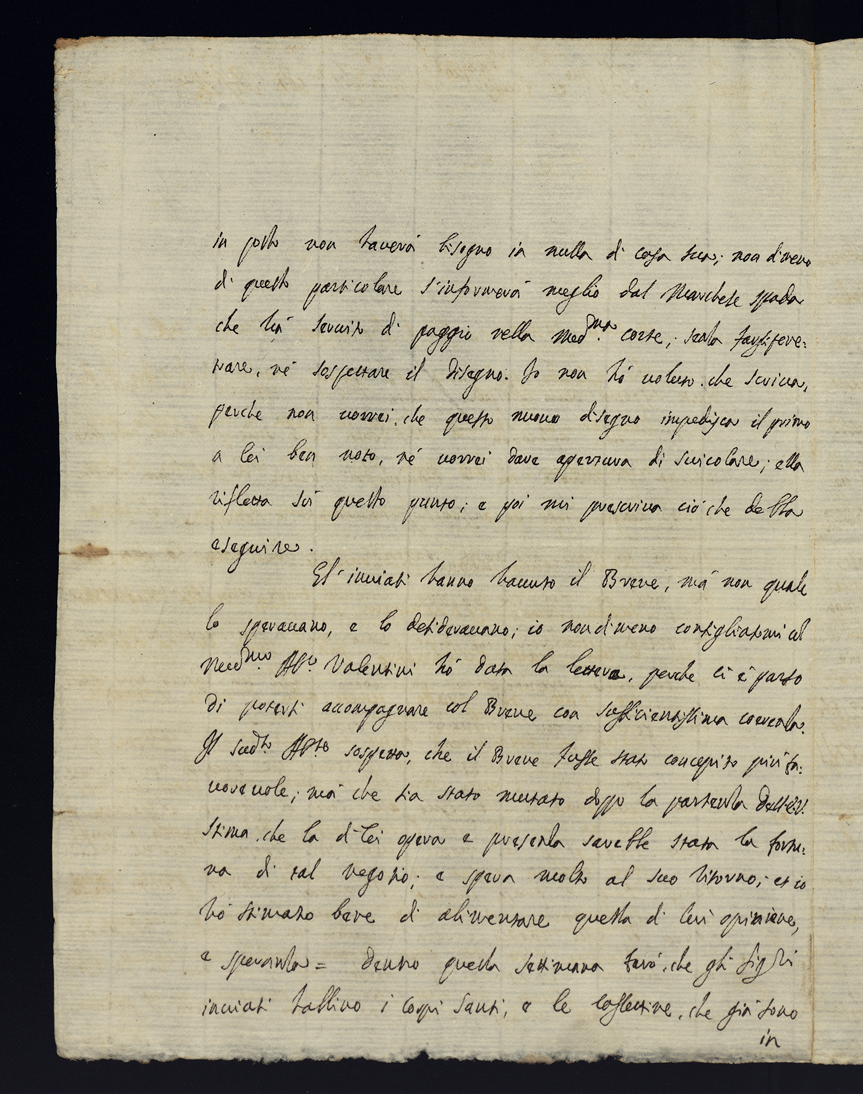 in posto non haverà bisogno in nulla di cosa sua; non dimeno
di questo particolare s'informerà meglio dal Marchese Spada
che hà servito di paggio nella med.ma corte, senza
nare, nè sospettare il disegno. Io non hò voluto che scriva,
perche non vorrei, che questo nuovo disegno impedisca il primo
a lei ben noto, nè vorrei dare apertura di ; ella
rifletta sù questo punto; e poi mi prescriva ciò che debba
eseguire.
Gl'inviati hanno havuto il Breve, mà non quale
lo speravano, e lo desideravano; io nondimeno consigliatomi col
Med.mo Ab.e Valentini hò data la lettera, perche ci è parso
di poterli accompagnare col Breve con sufficientissima coerenza.
Il sud.to Ab.te sospetta, che il Breve fusse stato concepito più fa:
vorevole; mà che sia stato mutato doppo la partenza
Stima che la di lei opera e presenza sarebbe stata la fortu:
na di tal negotio; e spera molto al suo ritorno; et io
hò stimato bene di alimentare questa di lui opinione,
e speranza = dentro questa settimana farò, che gli sig.ri
inviati habbino i Corpi Santi, e le cassettine, che già sono
in